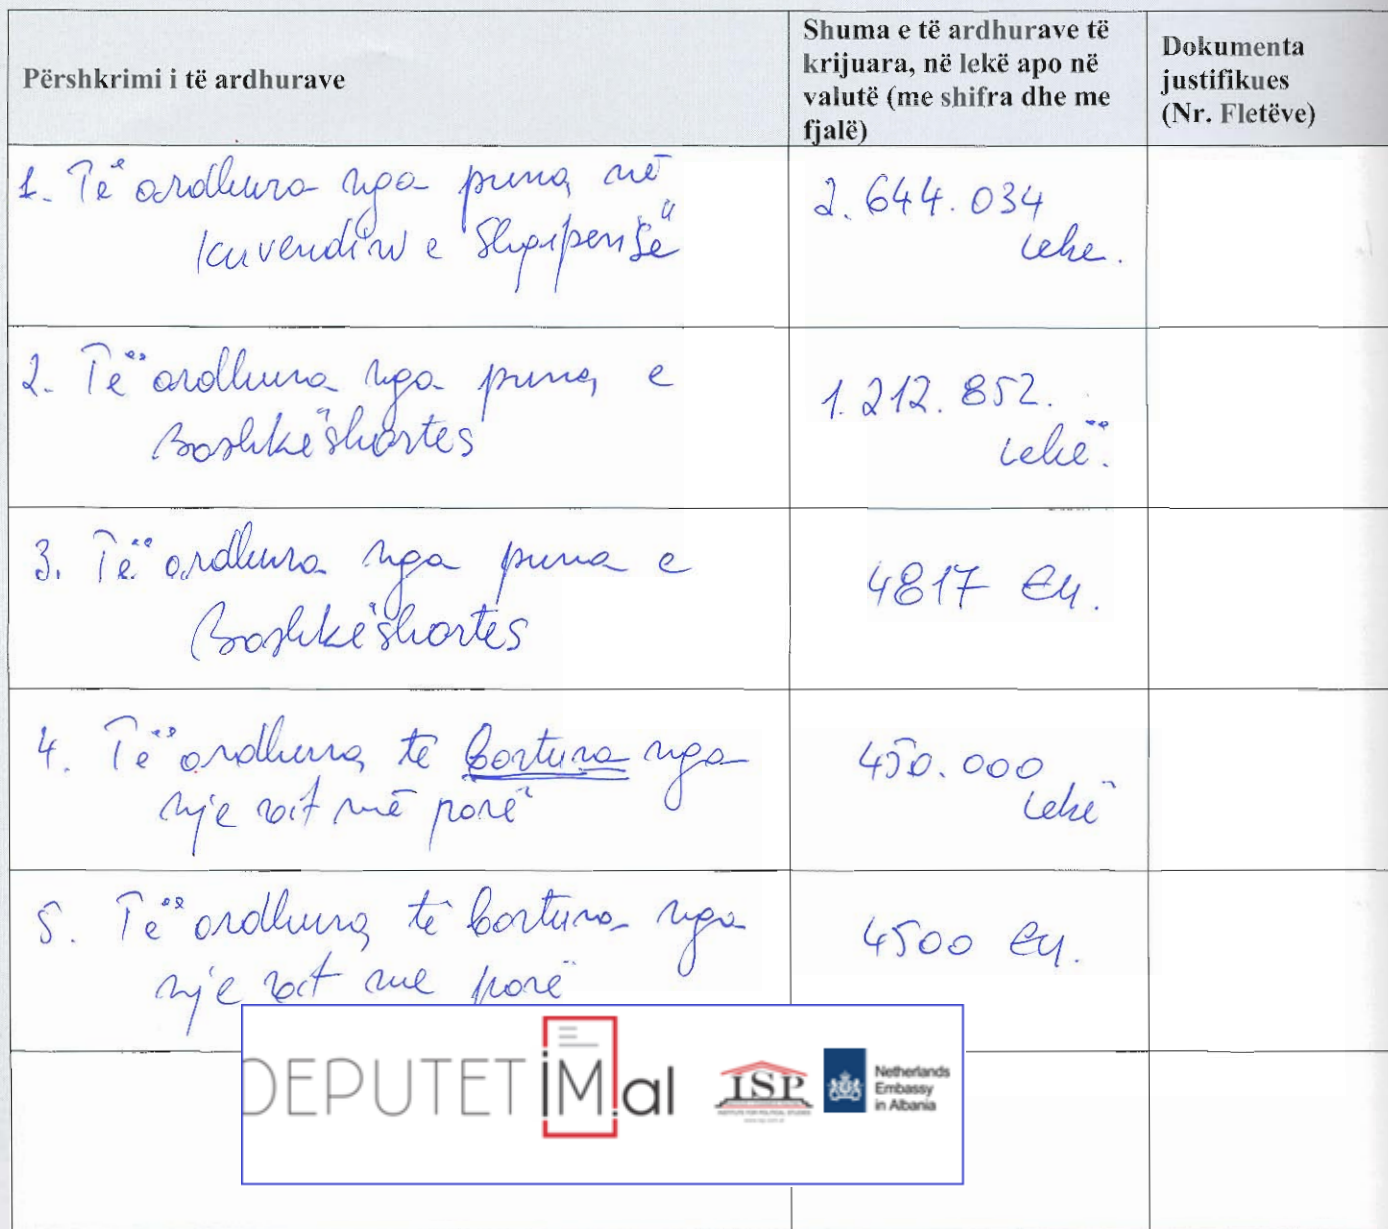 Përshkrimi i të ardhurave
Shuma e të ardhurave të
krijuara, në lekë apo në
valutë (me shifra dhe me
fjalë)
Dokumenta
justifikues
(Nr. Fletëve)
1. Të ardhura nga puna në
Kuvendin e Shqipërisë
2.644.034
lekë.
2. Të ardhura nga puna e
Bashkëshortes
1.212.852.
lekë.
3. Të ardhura nga puna e
Bashkëshortes
4817 eu.
4. Të ardhura të bartura nga
nje vit më parë
450.000
lekë
5. Të ardhura të bartura nga
nje vit me parë
4500 eu.
DEPUTETiM.al
ISP
Netherlands
Embassy
in Albania